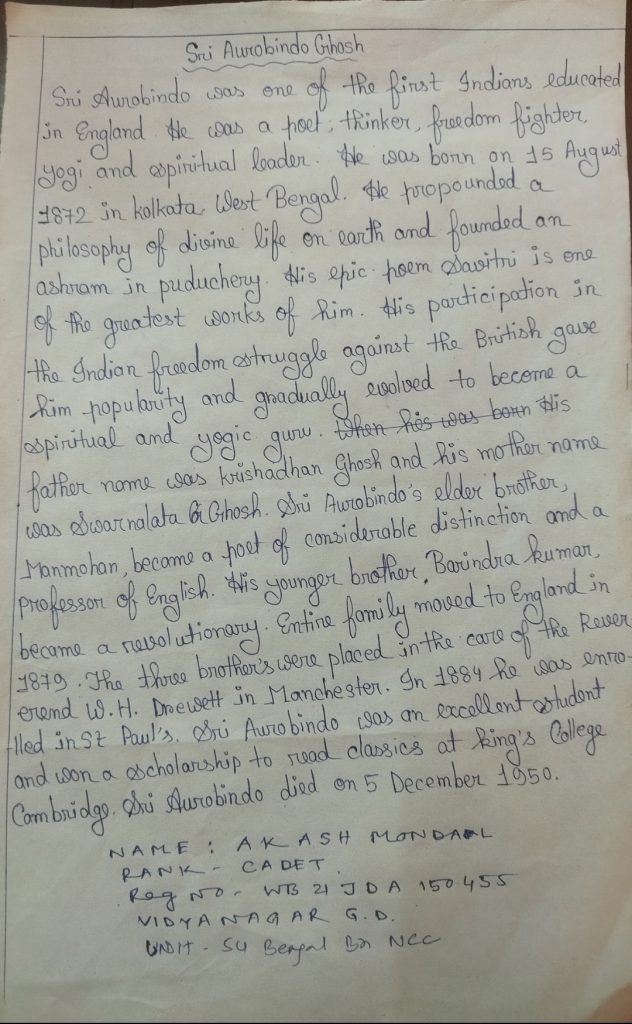 Sri Aurobindo Ghosh
Sri Aurobindo was one of the first Indians educated
in England. He was a poet, thinker, freedom fighter,
yogi and spiritual leader. He was born on 15 August
1872 in kolkata, West Bengal. He propounded a
philosophy of divine life on earth and founded an
ashram in puduchery. His epic poem Savitri is one
of the greatest works of him. His participation in
the Indian freedom struggle against the British gave
him popularity and gradually evolved to become a
spiritual and yogic guru. When his was born His
father name was krishadhan Ghosh and his mother name
was Swarnalata Ghosh. Sri Aurobindo's elder brother,
Manmohan, became a poet of considerable distinction and a
Professor of English. His younger brother, Barindra kumar,
became a revolutionary. Entire family moved to England in
1879. The three brother's were placed in the care of the Rever
erend W.H. Drewett in Manchester. In 1884 he was enro-
lled in St Paul's. Sri Aurobindo was an excellent student
and won a scholarship to read classics at king's College
Cambridge. Sri Aurobindo died on 5 December 1950.
NAME : AKASH MONDAL
RANK - CADET.
Reg NO - WB 21 JDA 150455
VIDYANAGAR G.D.
UNIT - 54 Bengal Bn NCC